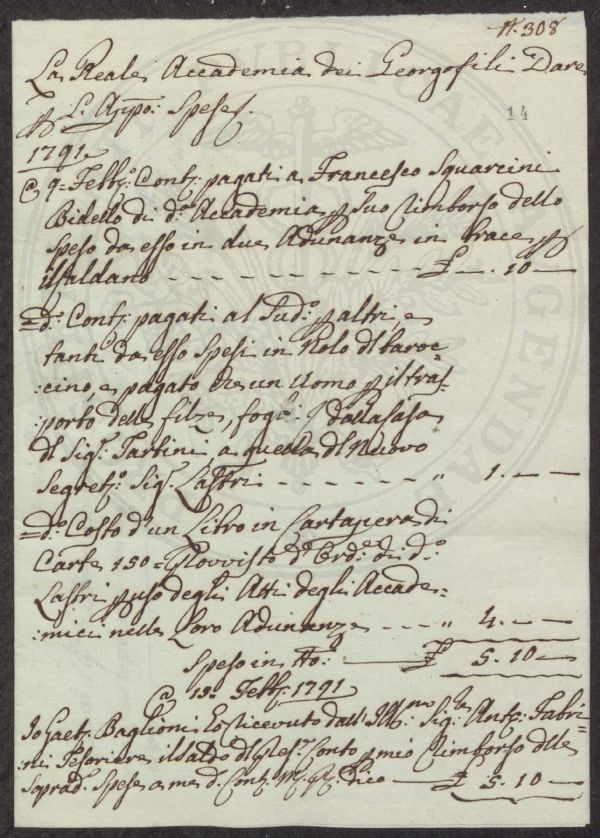 N. 308
La Reale Accademia dei Georgofili Dare
p L'Appo: Spese
14
1791
A 9 Febb:o Cont: pagati a Francesco Squarcini
Bidello di d:a Accademia p Suo Rimborso dello
Speso da esso in due Adunanze in brace p
il Caldano - - - - - - - - - £ —. 10 —
= d:o Cont: pagati al Sud:o p altri e
tanti da esso Spesi in Nolo d'
:cino, e pagato un Uomo p il tras-
:porto delle filze, fogli dalla Casa
del Sig: Tartini a quella del Nuovo
Segret:o Sig: Lastri - - - - - - " 1. — —
= d:o Costo d'un Libro in Cartapecora di
Carte 150 = Provvisto d'Ord:e di d:o
Lastri p uso degli Atti degli Accade=
:mici nelle Loro Adunanze - - - " 4. — —
Speso in tto: — £ 5. 10 —
A Febb: 1791
Io Gaet: Baglioni ho ricevuto dall' Ill:mo Sig:re Ant: Fabri=
:ni Tesoriere il Saldo del Pres: Conto p mio Rimborso delle
Soprad: Spese a me d: Cont: — £ 5. 10 —